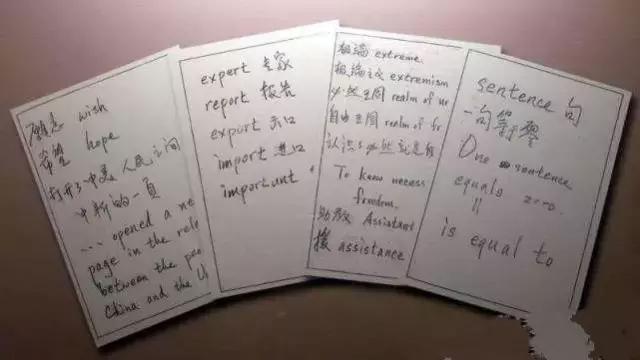 愿意 wish
希望 hope
打开了中美人民之间
中新的一頁
... opened a ne
page in the rela
between the peo
China and the U
expert 专家
report 报告
export 出口
import 进口
important
极端 extreme.
极端主义 extremism
必然王国 realm of ne
自由王国 realm of fr
认识了必然就是自
To know necess
freedom.
助教 Assistant
援 assistance
sentence 句
一句等于零
One sentence
equals zero.
is equal to